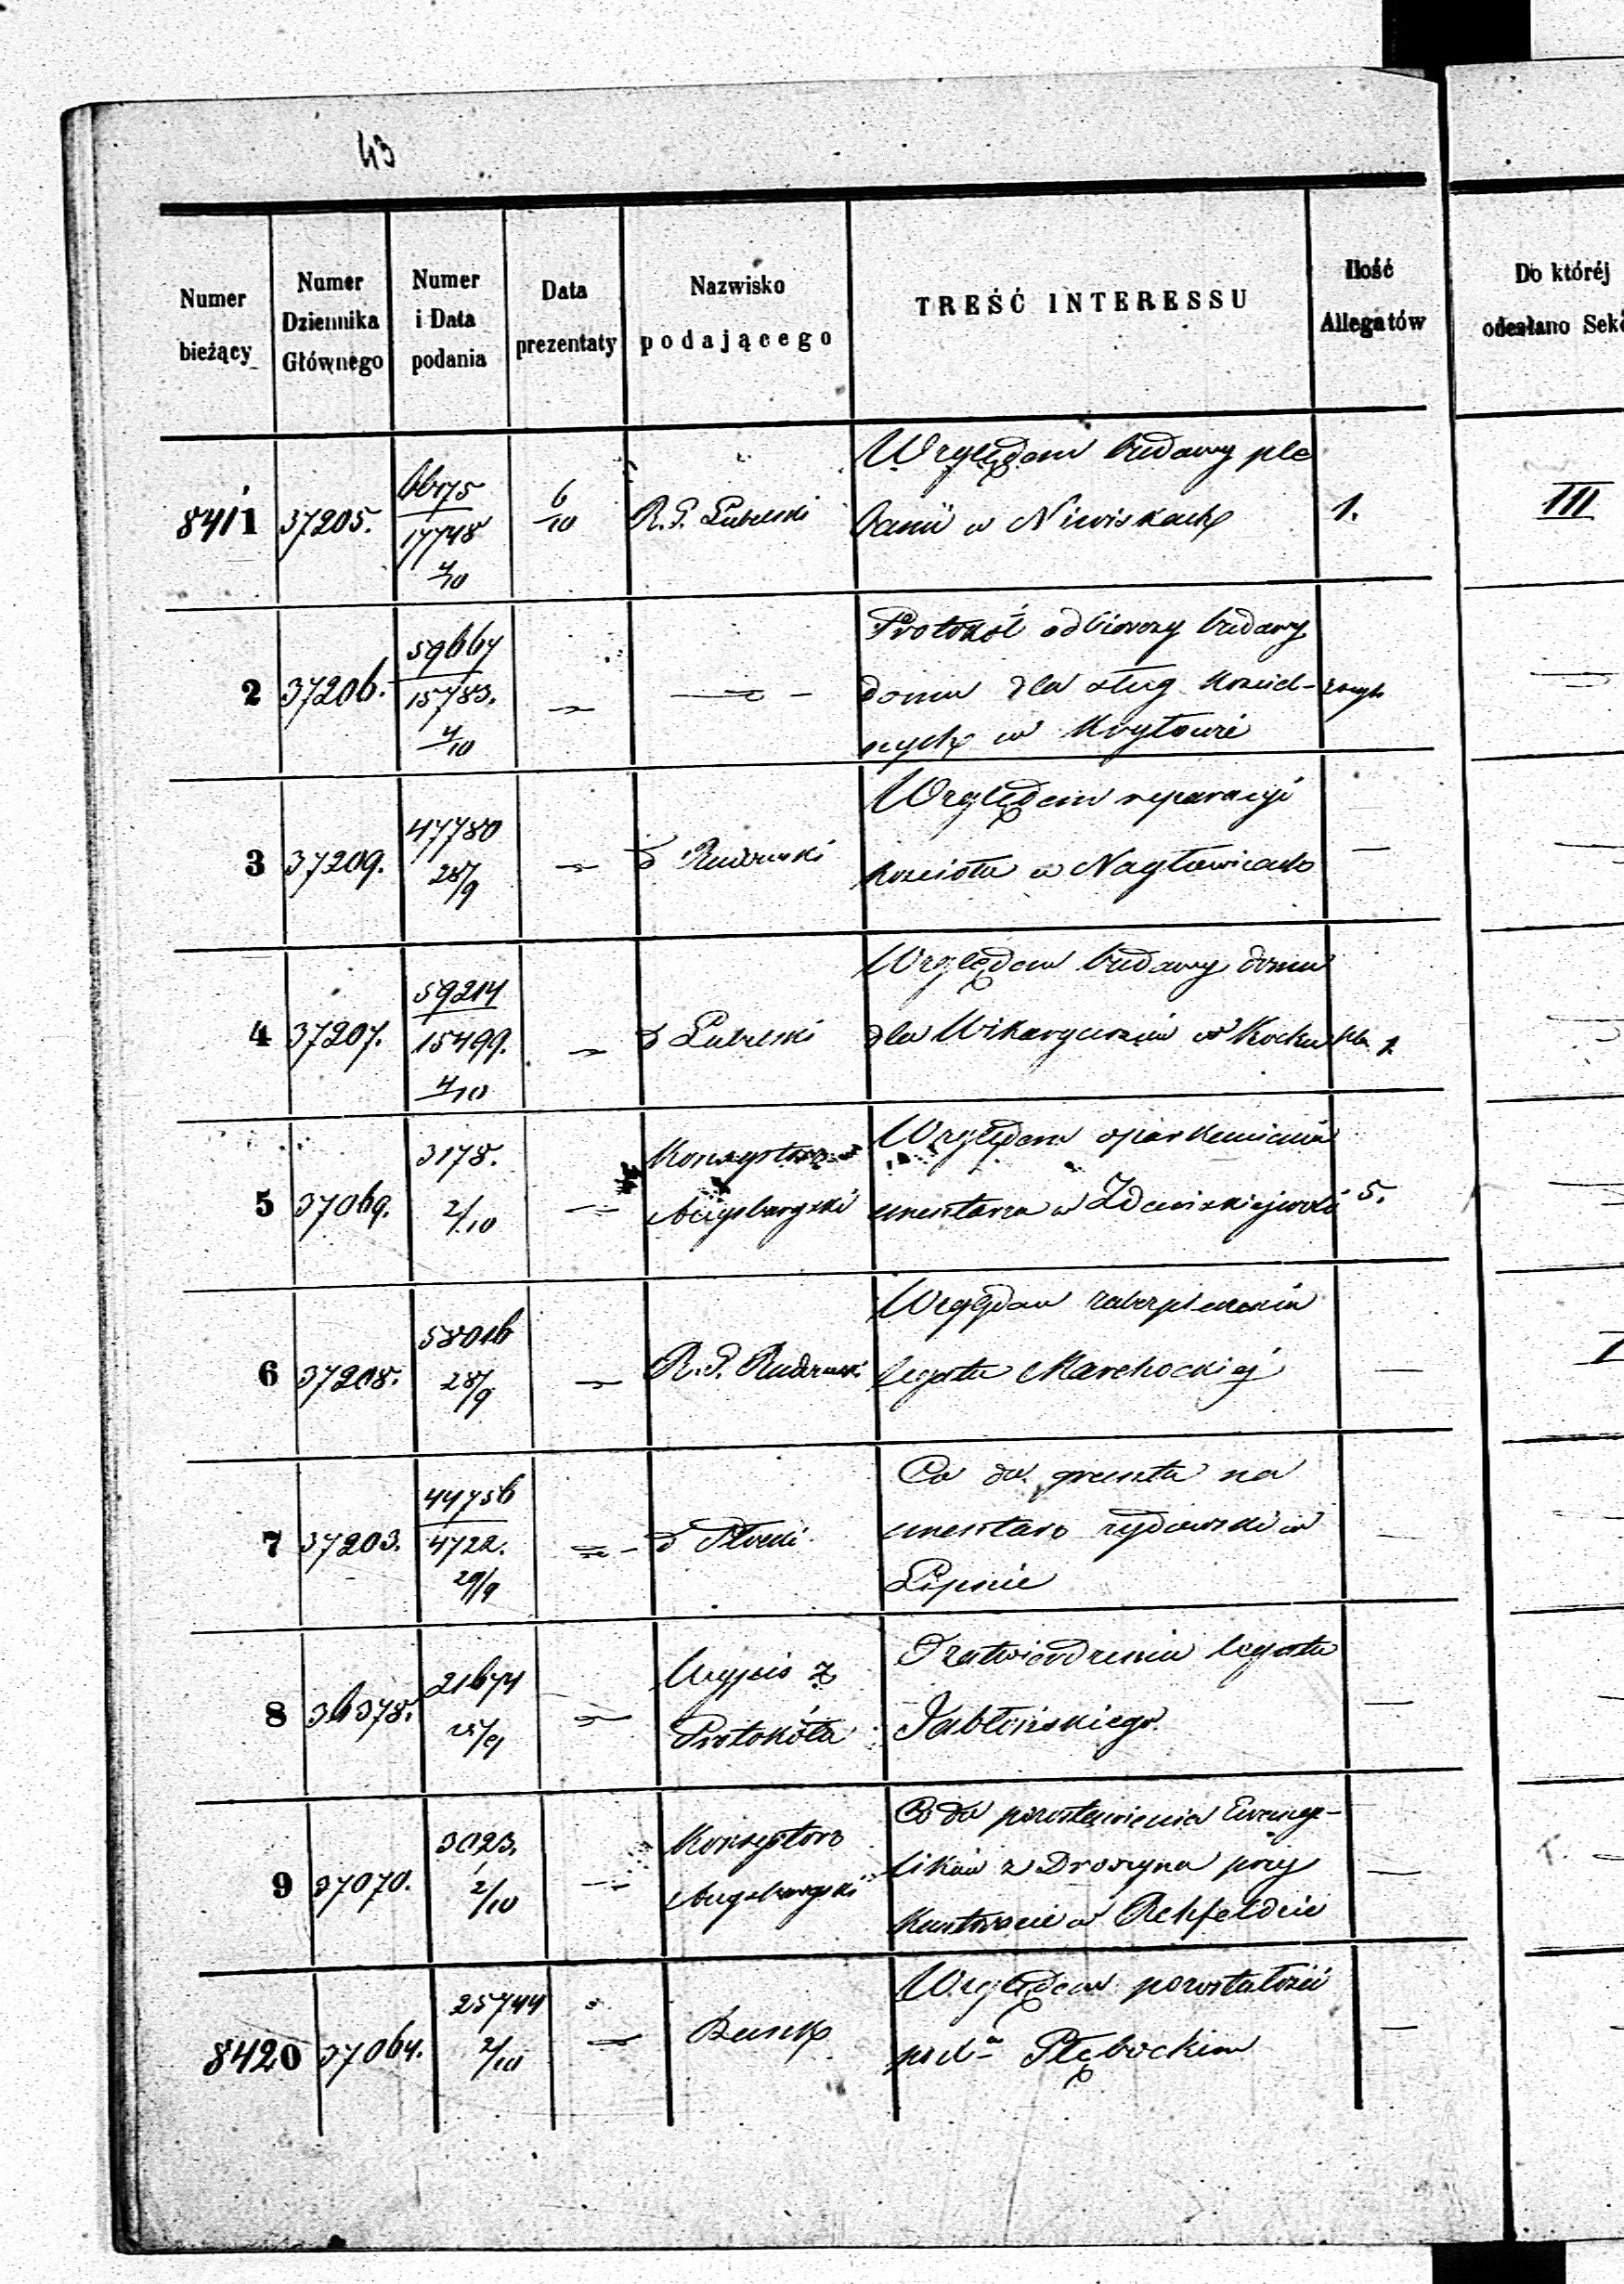 43
Numer bieżący
Numer Dziennika Głównego
Numer i Data podania
Data prezentaty
Nazwisko podającego
TREŚĆ INTERESSU
Ilość Allegatów
Do któréj
odesłano Sek
8411 37205. 6675 6/10 R. G. Lubelski Względem budowy ple 1. III
17748 banii w Niwiskach
4/10
2 37206. 59664 Protokół odbiorczy budowy
15783. domu dla sług kościel-
4/10 nych w Kryłowie
3 37209. 47780 Względem reparacyi
28/9 d Radomski kościoła w Nagłowicach —
4 37207. 59214 Względem budowy domu
15499. d Lubelski dla Wikaryuszów w Kocku 1
4/10
5 37069. 3178. Konsystorz Względem oparkanienia
2/10 Augsburgski cmentarza w Zduńskiejwoli 5.
6 37208. 58016 Względem zabezpieczenia
28/9 R. G. Radomski legatu Marchockiej —
7 37203. 44756 Co do gruntu na
4722. d Płocki cmentarz żydowski w
29/9 Lipnie
8 36378. 21674 Wypis z Zatwierdzenia legatu
25/9 Protokółu Jabłońskiego. —
9 37070. 3023. Konsystorz Co do pozostawienia Ewange-
2/10 Augsburgski lików z Droszyna przy —
Kantoracie w Rehfeldzie
8420 37064. 25744 Względem pozostałości
2/10 Bank po Kłębockim —